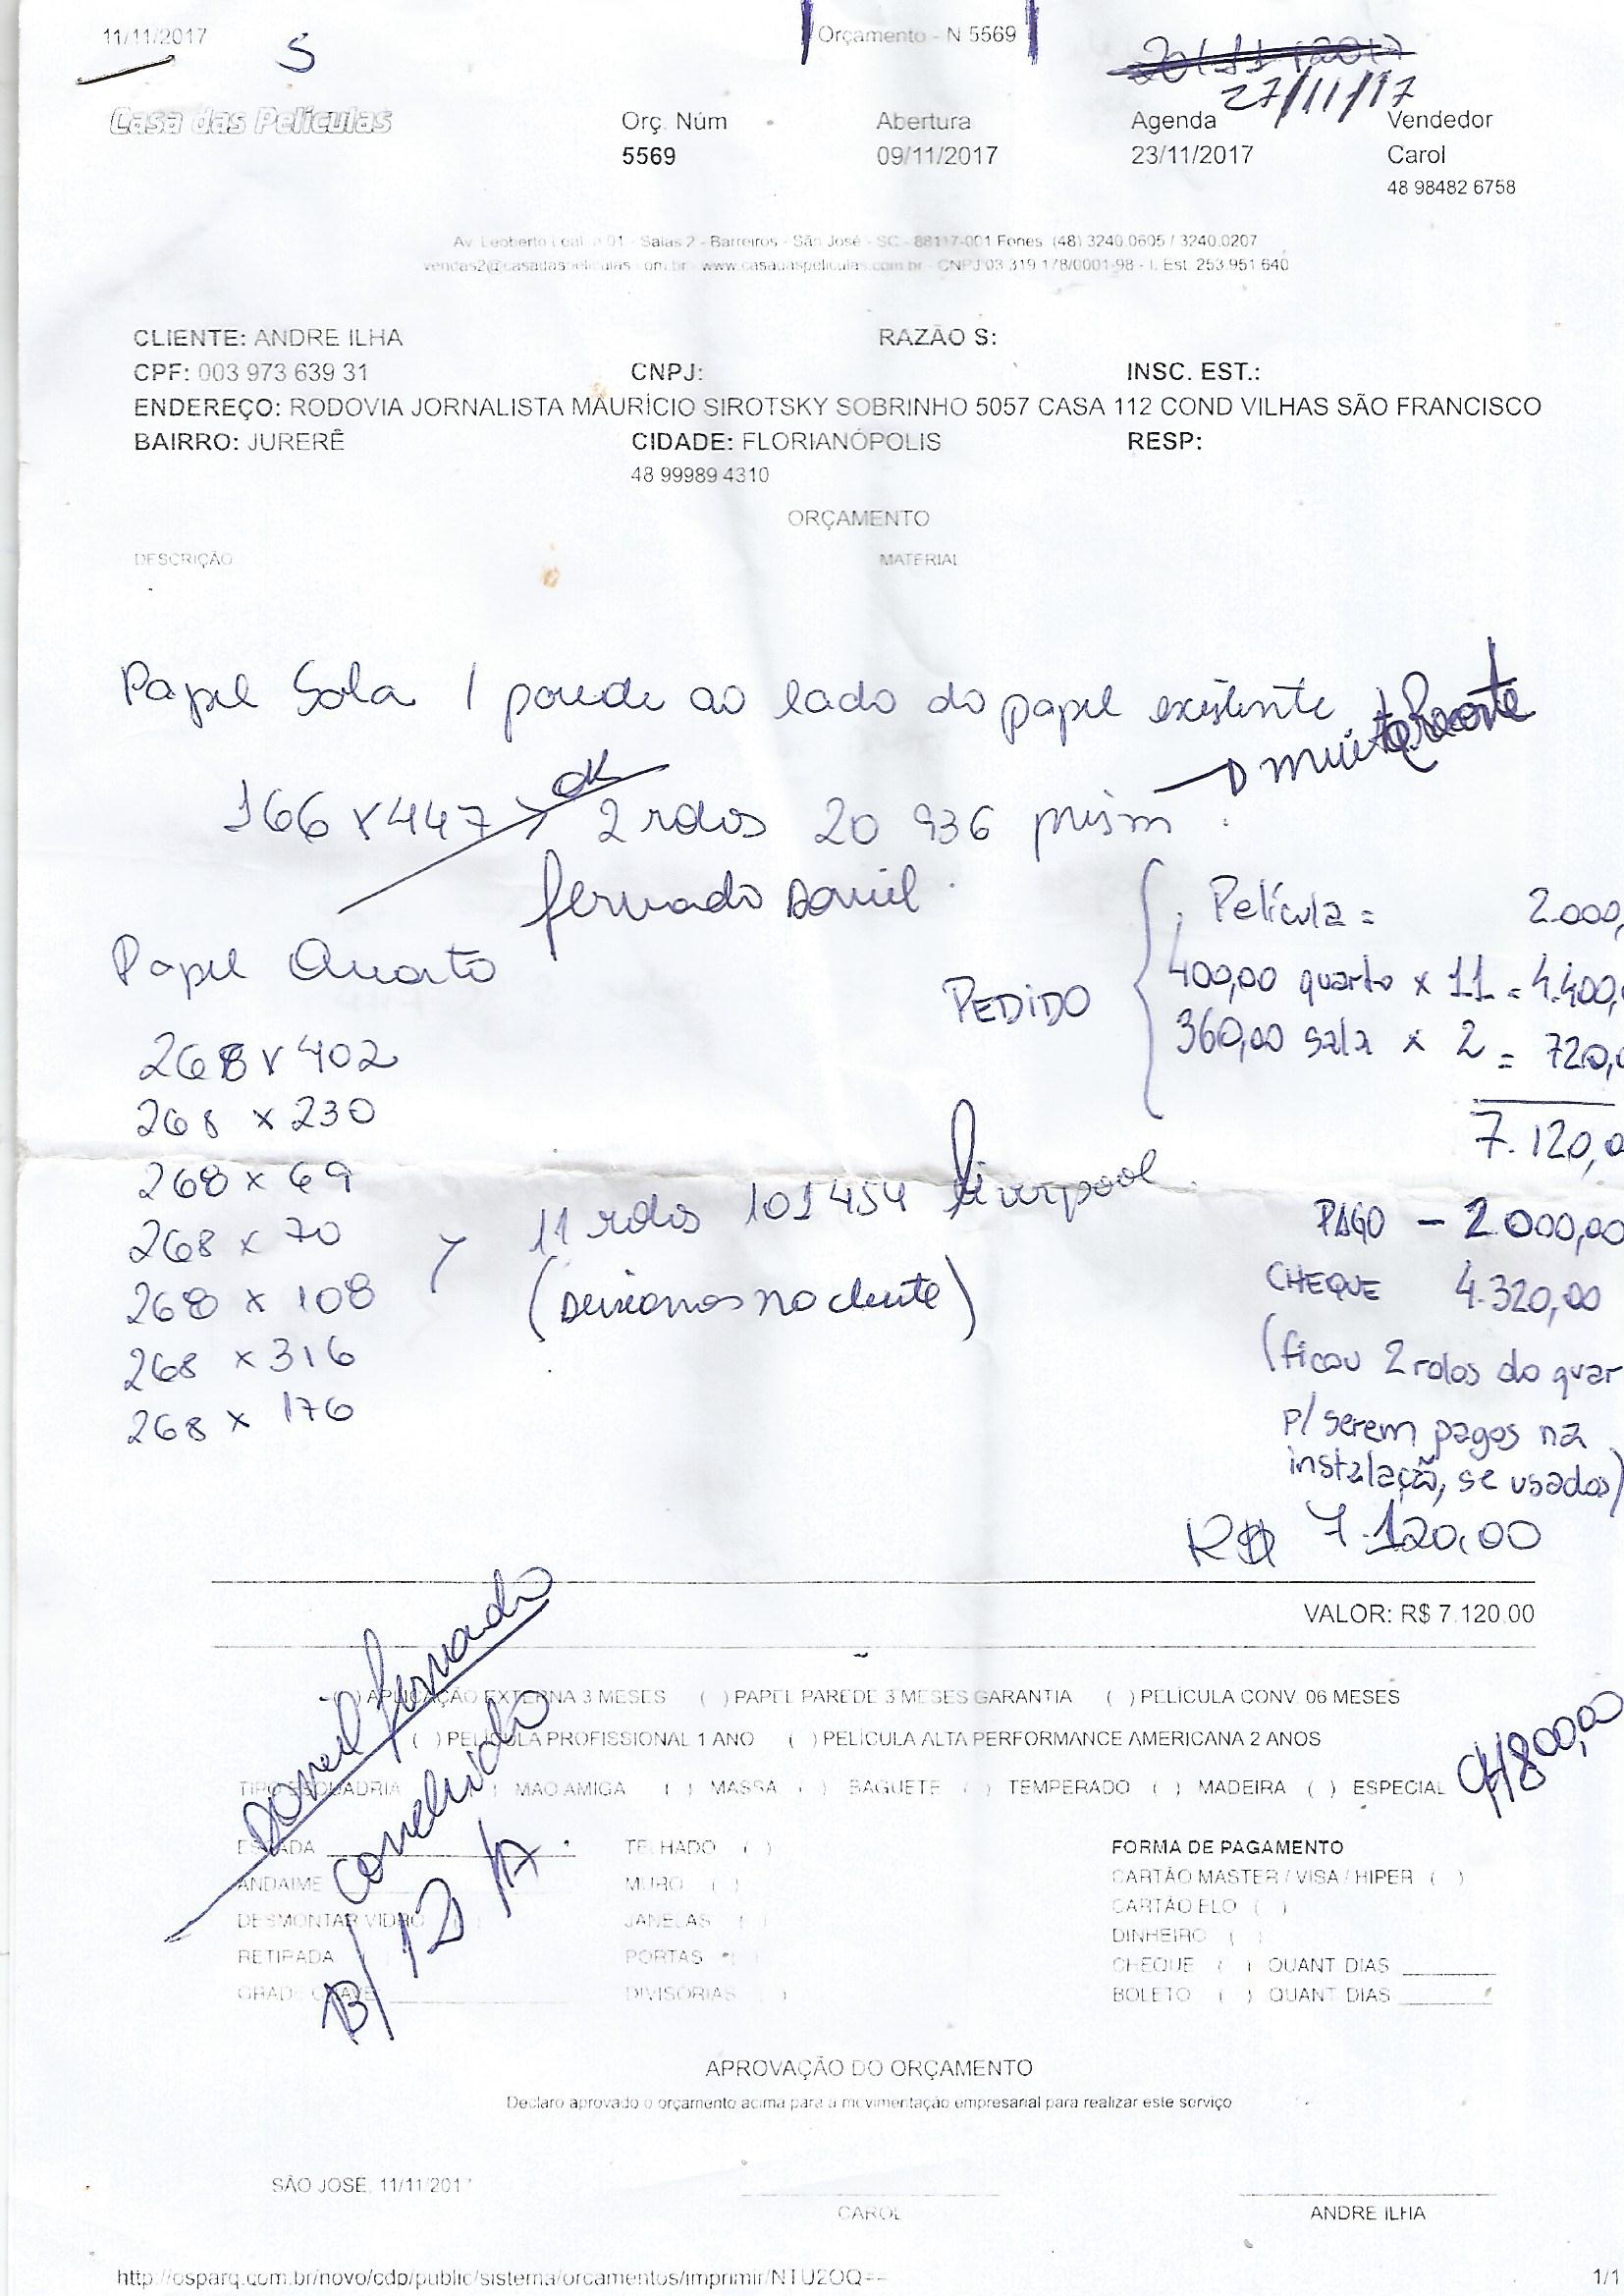 11/11/2017 Orçamento - N 5569
5 20/11/2017
27/11/17
Casa das Películas Orç. Núm Abertura Agenda Vendedor
5569 09/11/2017 23/11/2017 Carol
48 98482 6758
Av. Leoberto Leal, n 01 - Salas 2 - Barreiros - São José - SC - 88117-001 Fones: (48) 3240.0605 / 3240.0207
vendas2@casadaspeliculas.com.br - www.casadaspeliculas.com.br - CNPJ 03.319.178/0001-98 - I. Est. 253.951.640
CLIENTE: ANDRE ILHA RAZÃO S:
CPF: 003 973 639 31 CNPJ: INSC. EST.:
ENDEREÇO: RODOVIA JORNALISTA MAURÍCIO SIROTSKY SOBRINHO 5057 CASA 112 COND VILHAS SÃO FRANCISCO
BAIRRO: JURERÊ CIDADE: FLORIANÓPOLIS RESP:
48 99989 4310
ORÇAMENTO
DESCRIÇÃO MATERIAL
Papel Sala 1 parede ao lado do papel existente
muito Recorte
ok
166 x 447 > 2 rolos 20 936 prism
fernado Daniel
Película = 2.000,
Papel Quarto
PEDIDO 400,00 quarto x 11 = 4.400,
360,00 sala x 2 = 720,0
7.120,0
268 x 402
268 x 230
268 x 69
268 x 70 11 rolos 101454 Liverpool
268 x 108 (Deixamos no cliente)
268 x 316
268 x 176
PAGO - 2.000,00
CHEQUE 4.320,00
(ficou 2 rolos do quar
p/ serem pagos na
instalação, se usados)
R$ 7.120,00
VALOR: R$ 7.120,00
( ) APLICAÇÃO EXTERNA 3 MESES ( ) PAPEL PAREDE 3 MESES GARANTIA ( ) PELÍCULA CONV. 06 MESES
( ) PELÍCULA PROFISSIONAL 1 ANO ( ) PELÍCULA ALTA PERFORMANCE AMERICANA 2 ANOS
TIPO ESQUADRIA ( ) MAO AMIGA ( ) MASSA ( ) BAGUETE ( ) TEMPERADO ( ) MADEIRA ( ) ESPECIAL
800,00
Daniel fernado
concluido
13/12/17
ESCADA TELHADO ( ) FORMA DE PAGAMENTO
ANDAIME MURO ( ) CARTÃO MASTER / VISA / HIPER ( )
DESMONTAR VIDRO JANELAS ( ) CARTÃO ELO ( )
RETIRADA PORTAS ( ) DINHEIRO ( )
GRADE CHAVE DIVISORIAS ( ) CHEQUE ( ) QUANT DIAS
BOLETO ( ) QUANT DIAS
APROVAÇÃO DO ORÇAMENTO
Declaro aprovado o orçamento acima para a movimentação empresarial para realizar este serviço
SÃO JOSE, 11/11/2017
CAROL ANDRE ILHA
http://osparq.com.br/novo/cdp/public/sistema/orcamentos/imprimir/NTU2OQ== 1/1